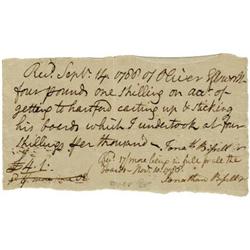 Recd. Septr. 14. 1788 of Oliver Ellsworth
four pounds one shilling on acct of
getting to hartford carting up & sticking
his boards which I undertook at four
shillings per thousand — Jonath Bissell Jr
Recd 17/ more being in full for all the
boards Novr. 10. 1788.
Jonathan Bissell Jr
£4. 1.